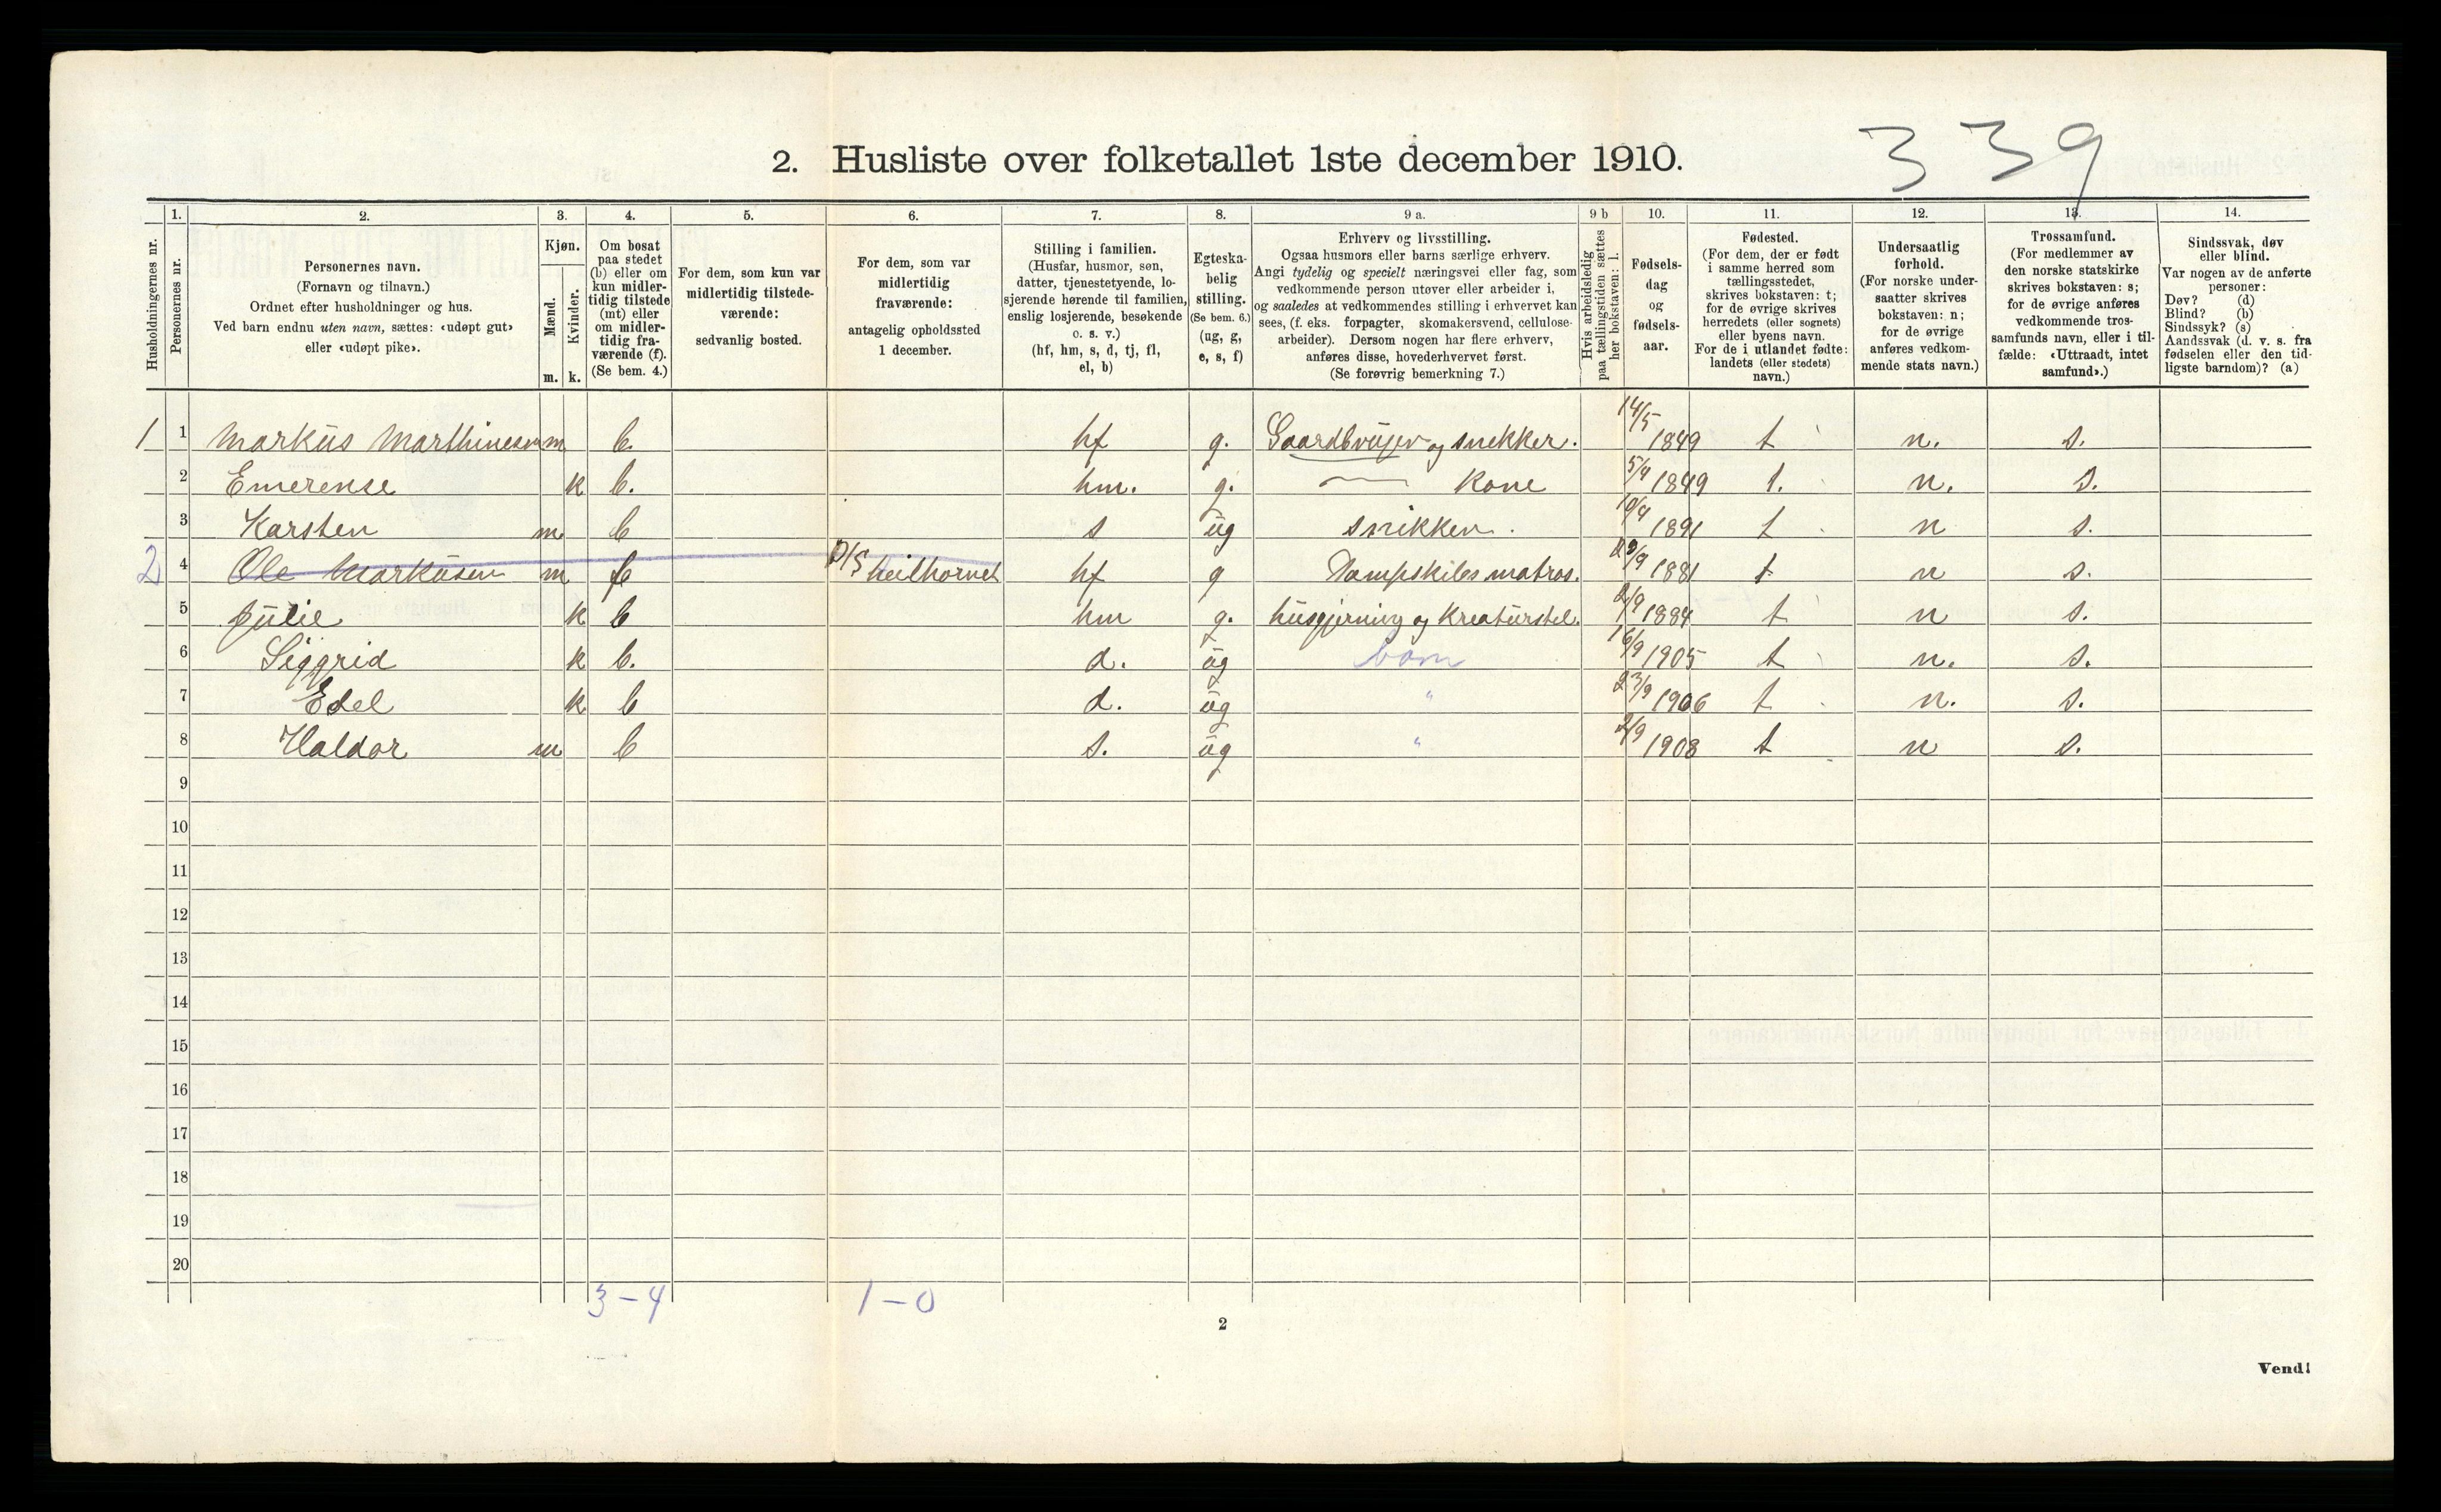 339
2. Husliste over folketallet 1ste december 1910.
Husholdningernes nr.
1. Personernes nr.
2. Personernes navn.
(Fornavn og tilnavn.)
Ordnet efter husholdninger og hus.
Ved barn endnu uten navn, sættes: «udøpt gut»
eller «udøpt pike».
3. Kjøn.
Mænd. Kvinder.
m. k.
4. Om bosat
paa stedet
(b) eller om
kun midler-
tidig tilstede
(mt) eller
om midler-
tidig fra-
værende (f).
(Se bem. 4.)
5. For dem, som kun var
midlertidig tilstede-
værende:
sedvanlig bosted.
6. For dem, som var
midlertidig
fraværende:
antagelig opholdssted
1 december.
7. Stilling i familien.
(Husfar, husmor, søn,
datter, tjenestetyende, lo-
sjerende hørende til familien,
enslig losjerende, besøkende
o. s. v.)
(hf, hm, s, d, tj, fl,
el, b)
8. Egteska-
belig
stilling.
(Se bem. 6.)
(ug, g,
e, s, f)
9 a. Erhverv og livsstilling.
Ogsaa husmors eller barns særlige erhverv.
Angi tydelig og specielt næringsvei eller fag, som
vedkommende person utøver eller arbeider i,
og saaledes at vedkommendes stilling i erhvervet kan
sees, (f. eks. forpagter, skomakersvend, cellulose-
arbeider). Dersom nogen har flere erhverv,
anføres disse, hovederhvervet først.
(Se forøvrig bemerkning 7.)
9 b Hvis arbeidsledig
paa tællingstiden sættes
her bokstaven: l.
10. Fødsels-
dag
og
fødsels-
aar.
11. Fødested.
(For dem, der er født
i samme herred som
tællingsstedet,
skrives bokstaven: t;
for de øvrige skrives
herredets (eller sognets)
eller byens navn.
For de i utlandet fødte:
landets (eller stedets)
navn.)
12. Undersaatlig
forhold.
(For norske under-
saatter skrives
bokstaven: n;
for de øvrige
anføres vedkom-
mende stats navn.)
13. Trossamfund.
(For medlemmer av
den norske statskirke
skrives bokstaven: s;
for de øvrige anføres
vedkommende tros-
samfunds navn, eller i til-
fælde: «Uttraadt, intet
samfund».)
14. Sindssvak, døv
eller blind.
Var nogen av de anførte
personer:
Døv? (d)
Blind? (b)
Sindssyk? (s)
Aandssvak (d. v. s. fra
fødselen eller den tid-
ligste barndom)? (a)
1 1 Markus Marthinesen m b. hf g. Gaardbruger og snekker. 14/5 1849 t n. s.
2 Emerense k b. hm. g. — Kone 5/4 1849 t. n. s.
3 Karsten m. b s ug snikker. 10/4 1891 t n s.
2 4 Ole Markusen m f D/S Heilhornet hf g Dampskibs matros. 1881 t n s.
5 Julie k b hm g. husgjerning og Kreaturstel. 1884 t n s.
6 Siggrid k b. d. ug barn 16/9 1905 t n. s.
7 Edel k b d. ug " 23/9 1906 t n. s.
8 Haldor m b s. ug " 2/9 1908 t n s.
9
10
11
12
13
14
15
16
17
18
19
20
3 – 4 1 – 0
2
Vend!